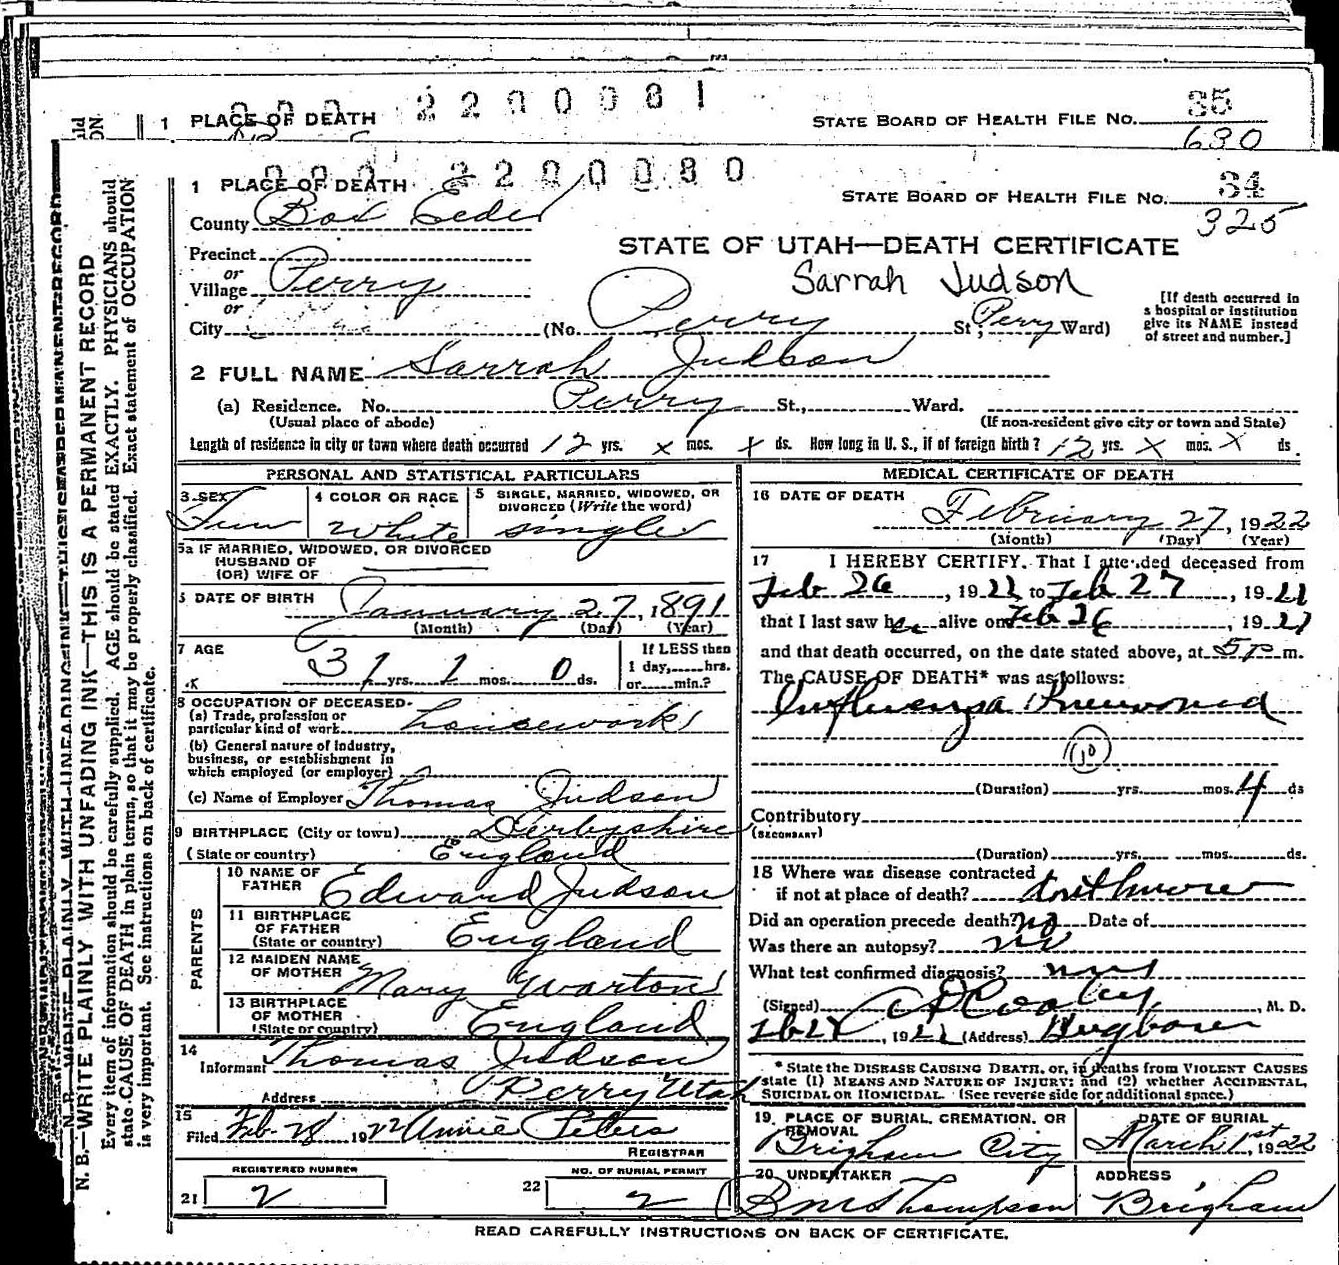 000 2200081
1 PLACE OF DEATH
STATE BOARD OF HEALTH FILE NO. 35
630
000 2200080
1 PLACE OF DEATH
STATE BOARD OF HEALTH FILE NO. 34
325
County Box Elder
STATE OF UTAH—DEATH CERTIFICATE
Precinct
or
Village Perry
Sarrah Judson
or
City (No. Perry St; Perry Ward)
[If death occurred in
a hospital or institution
give its NAME instead
of street and number.]
2 FULL NAME Sarrah Judson
(a) Residence. No. Perry St., Ward.
(Usual place of abode) (If non-resident give city or town and State)
Length of residence in city or town where death occurred 12 yrs. x mos. x ds. How long in U. S., if of foreign birth? 12 yrs. x mos. x ds
PERSONAL AND STATISTICAL PARTICULARS
3 SEX Fem
4 COLOR OR RACE White
5 SINGLE, MARRIED, WIDOWED, OR
DIVORCED (Write the word)
single
5a IF MARRIED, WIDOWED, OR DIVORCED
HUSBAND OF
(OR) WIFE OF
DATE OF BIRTH January 27, 1891
(Month) (Day) (Year)
7 AGE 31 yrs. 1 mos. 0 ds.
If LESS then
1 day, hrs.
or min.?
8 OCCUPATION OF DECEASED
(a) Trade, profession or
particular kind of work housework
(b) General nature of industry,
business, or establishment in
which employed (or employer)
(c) Name of Employer Thomas Judson
9 BIRTHPLACE (City or town) Derbyshire
(State or country) England
PARENTS
10 NAME OF
FATHER Edward Judson
11 BIRTHPLACE
OF FATHER
(State or country) England
12 MAIDEN NAME
OF MOTHER Mary Warton
13 BIRTHPLACE
OF MOTHER
(State or country) England
14
Informant Thomas Judson
Address Perry Utah
15
Filed Feb. 28 1922 Annie Peters
REGISTRAR
REGISTERED NUMBER
21 2
NO. OF BURIAL PERMIT
22 2
MEDICAL CERTIFICATE OF DEATH
16 DATE OF DEATH
February 27, 1922
(Month) (Day) (Year)
17 I HEREBY CERTIFY. That I attended deceased from
Feb 26, 1922 to Feb 27, 1922
that I last saw her alive on Feb 26, 1922
and that death occurred, on the date stated above, at 5 P m.
The CAUSE OF DEATH* was as follows:
Influenza Pneumonia
(10)
(Duration) yrs. mos. 4 ds
Contributory
(SECONDARY)
(Duration) yrs. mos. ds.
18 Where was disease contracted
if not at place of death?
Did an operation precede death? no Date of
Was there an autopsy? no
What test confirmed diagnosis?
(Signed) Cooley, M. D.
, 1922 (Address) Brigham
* State the DISEASE CAUSING DEATH, or, in deaths from VIOLENT CAUSES
state (1) MEANS AND NATURE OF INJURY; and (2) whether ACCIDENTAL,
SUICIDAL OR HOMICIDAL. (See reverse side for additional space.)
19 PLACE OF BURIAL, CREMATION, OR
REMOVAL
Brigham City
DATE OF BURIAL
March 1st, 1922
20 UNDERTAKER
B M Thompson
ADDRESS
Brigham
READ CAREFULLY INSTRUCTIONS ON BACK OF CERTIFICATE.
N. B.—WRITE PLAINLY WITH UNFADING INK—THIS IS A PERMANENT RECORD
Every item of information should be carefully supplied. AGE should be stated EXACTLY. PHYSICIANS should
state CAUSE OF DEATH in plain terms, so that it may be properly classified. Exact statement of OCCUPATION
is very important. See instructions on back of certificate.